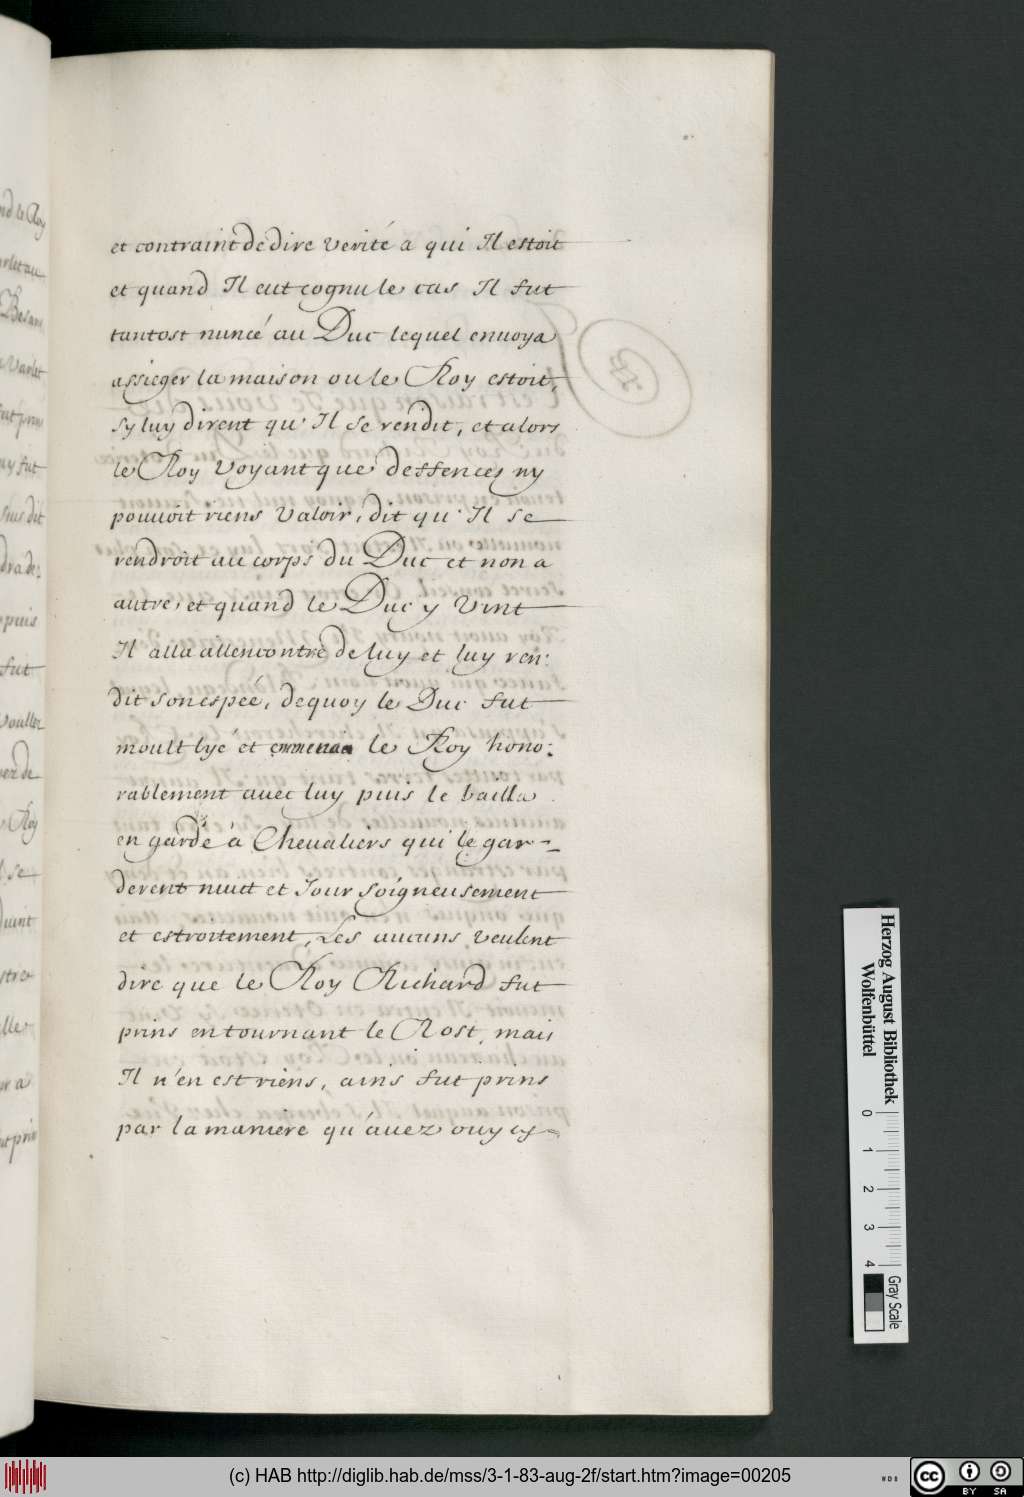 et contraint de dire verité a qui Il estoit
et quand Il eut cognu le cas Il fut
tantost nuncé au Duc lequel enuoya
assieger la maison ou le Roy estoit,
sy luy dirent qu' Il se rendit, et alors
le Roy voyant que deffences ny
pouuoit riens valoir, dit qu' Il se
rendroit au corps du Duc et non a
autre, et quand le Duc y vint
Il alla allencontre de luy et luy ren:
dit son espeé, dequoy le Duc fut
moult lyé et emmena le Roy hono:
rablement avec luy puis le bailla
en garde à Chevaliers qui le gar-
derent nuit et Jour soigneusement
et estroitement, Les aucuns veulent
dire que le Roy Richard fut
prins en tournant le Rost, mais
Il n'en est riens, ains fut prins
par la maniere qu'auez ouy cy
nd le Roy
Besan
varlet
fut prins
uy fut
sus dit
puis
fut
vouller
de
Roy
se
duint
stre
a
prin
Herzog August Bibliothek
Wolfenbüttel
0 1 2 3 4
Gray Scale
(c) HAB http://diglib.hab.de/mss/3-1-83-aug-2f/start.htm?image=00205
WDB
cc BY SA